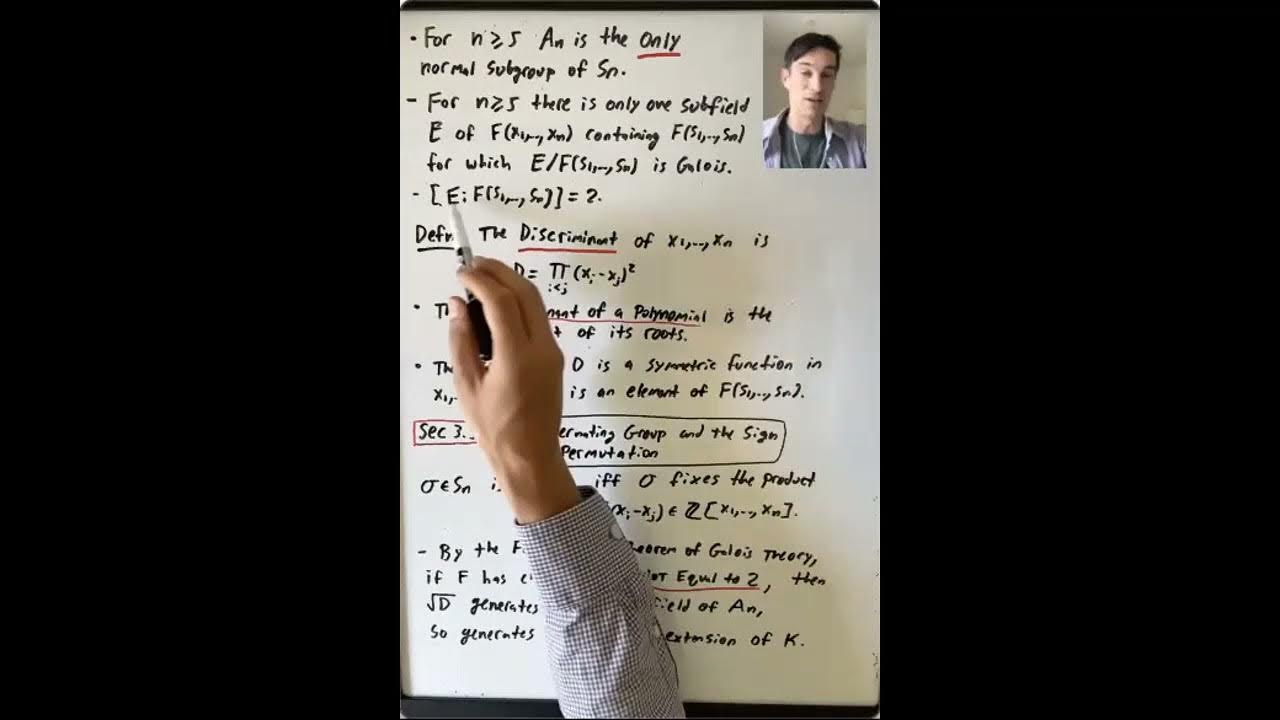 • For n ≥ 5 An is the only
normal subgroup of Sn.
- For n ≥ 5 there is only one subfield
E of F(x1,..,xn) containing F(s1,..,sn)
for which E/F(s1,..,sn) is Galois.
- [E: F(s1,..,sn)] = 2.
Defn The Discriminant of x1,..,xn is
D = ∏ (xi-xj)²
i<j
• Th of a Polynomial is the
of its roots.
• Th D is a symmetric function in
x1, is an element of F(s1,..,sn).
Sec 3. Group and the Sign
Permutation
σ ∈ Sn iff σ fixes the product
(xi-xj) ∈ ℤ[x1,..,xn].
- By the of Galois Theory,
if F has Equal to 2, then
√D generates of An,
So generates extension of K.